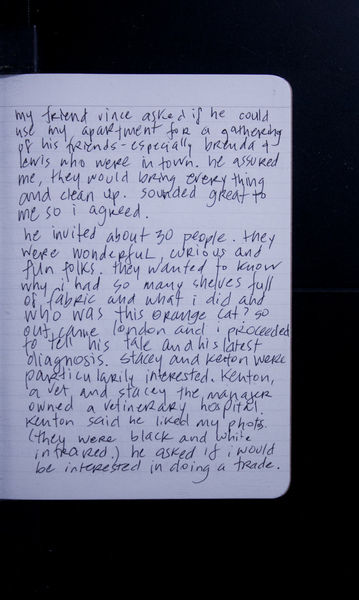 my friend vince asked if he could
use my apartment for a gathering
of his friends - especially brenda +
lewis who were in town. he assured
me, they would bring every thing
and clean up. sounded great to
me so i agreed.
he invited about 30 people. they
were wonderful, curious and
fun folks. they wanted to know
why i had so many shelves full
of fabric and what i did and
who was this orange cat? so
out came london and i proceeded
to tell his tale and his latest
diagnosis. stacey and kenton were
particularily interested. kenton,
a vet and stacey the manager
owned a vetinerary hospital.
kenton said he liked my photos.
(they were black and white
infrared.) he asked if i would
be interested in doing a trade.